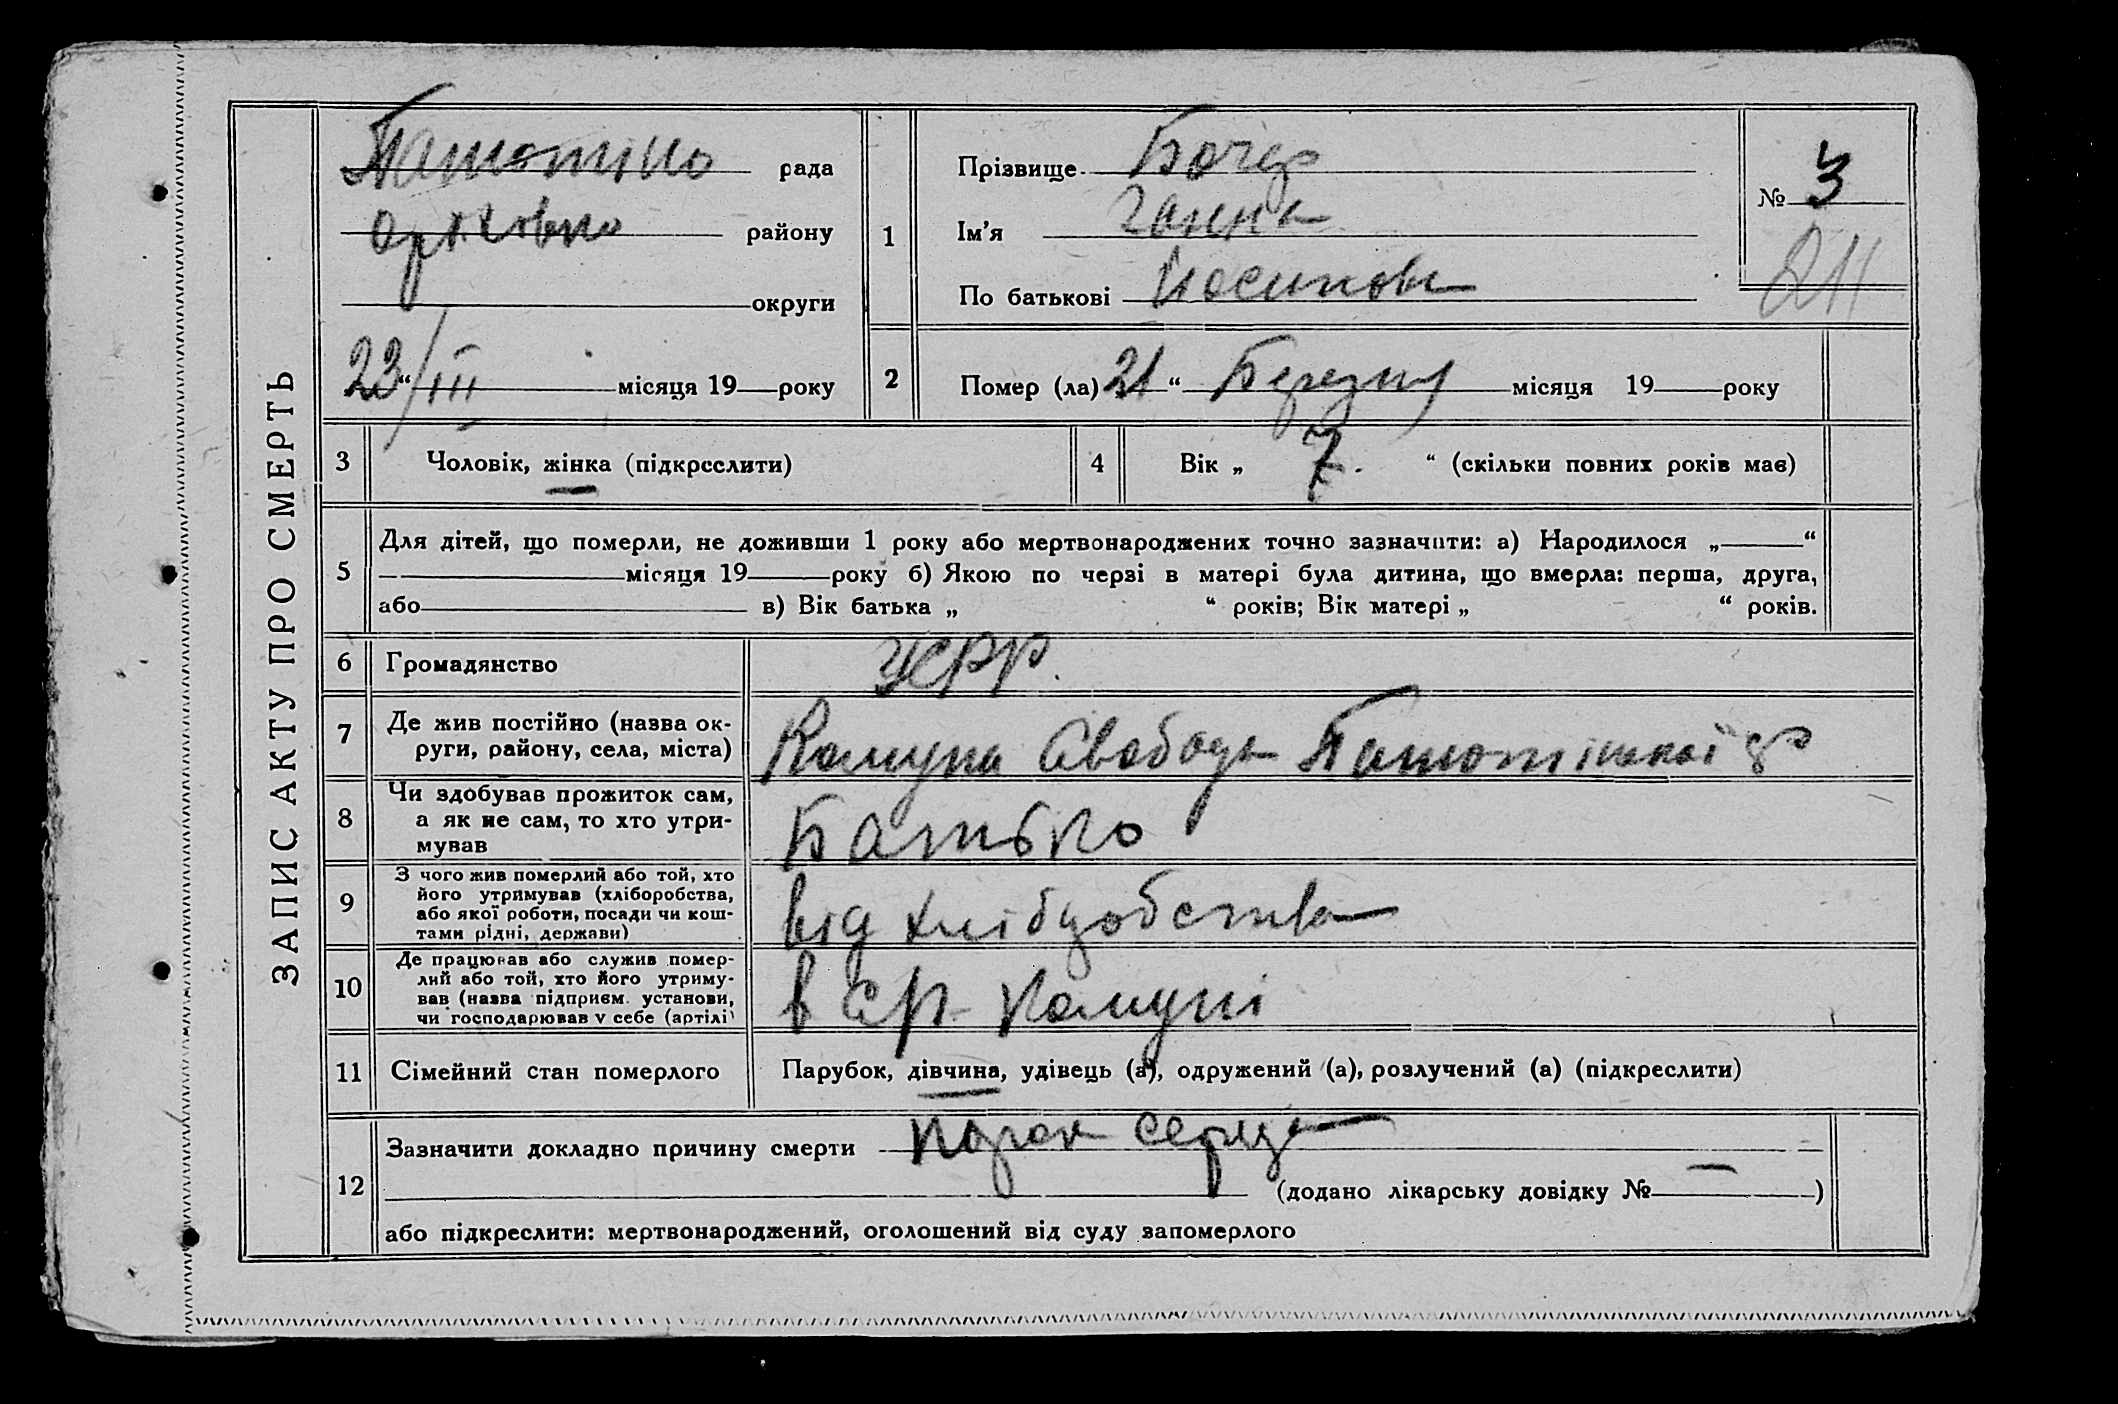 ЗАПИС АКТУ ПРО СМЕРТЬ
рада
району
округи
23/III " місяця 19 року
1
Прізвище
Ім’я Ганна
По батькові Йосиповна
№ 3
211
2
Помер (ла) 21 " Березня місяця 19 року
3 Чоловік, жінка (підкреслити)
4 Вік „ 7. “ (скільки повних років має)
5
Для дітей, що померли, не доживши 1 року або мертвонароджених точно зазначити: а) Народилося „ “
місяця 19 року б) Якою по черзі в матері була дитина, що вмерла: перша, друга,
або в) Вік батька „ “ років; Вік матері „ “ років.
6 Громадянство УСРР.
7 Де жив постійно (назва ок-
руги, району, села, міста)
Комуна Свобода
8 Чи здобував прожиток сам,
а як не сам, то хто утри-
мував
Батько
9 З чого жив померлий або той, хто
його утримував (хліборобства,
або якої роботи, посади чи кош-
тами рідні, держави)
від хліборобства
10 Де працював або служив помер-
лий або той, хто його утриму-
вав (назва підприєм. установи,
чи господарював у себе (артілі)
в с/г. комуні
11 Сімейний стан померлого
Парубок, дівчина, удівець (а), одружений (а), розлучений (а) (підкреслити)
12
Зазначити докладно причину смерти порок серця
(додано лікарську довідку № — )
або підкреслити: мертвонароджений, оголошений від суду запомерлого